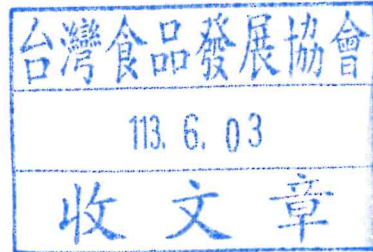 台灣食品發展協會
113. 6. 03
收文章